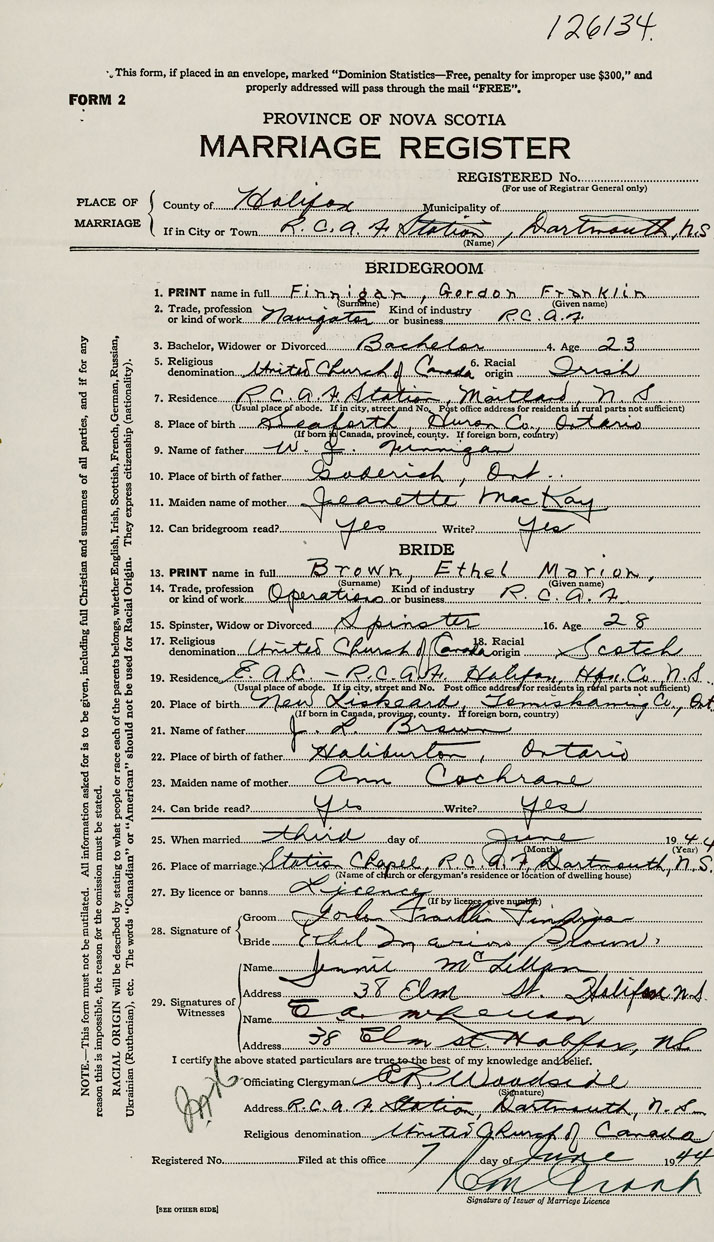 126134.
This form, if placed in an envelope, marked "Dominion Statistics—Free, penalty for improper use $300," and
properly addressed will pass through the mail "FREE".
FORM 2
PROVINCE OF NOVA SCOTIA
MARRIAGE REGISTER
REGISTERED No.
(For use of Registrar General only)
PLACE OF MARRIAGE
County of Halifax Municipality of
If in City or Town R.C.A.F. Station, Dartmouth, N.S
(Name)
BRIDEGROOM
1. PRINT name in full Finnigan, Gordon Franklin
(Surname) (Given name)
2. Trade, profession or kind of work Navigator Kind of industry or business R.C.A.F.
3. Bachelor, Widower or Divorced Bachelor 4. Age 23
5. Religious denomination United Church of Canada 6. Racial origin Irish
7. Residence R.C.A.F. Station, Maitland, N.S.
(Usual place of abode. If in city, street and No. Post office address for residents in rural parts not sufficient)
8. Place of birth Seaforth, Huron Co., Ontario
(If born in Canada, province, county. If foreign born, country)
9. Name of father W. J. Finnigan
10. Place of birth of father Goderich, Ont.
11. Maiden name of mother Jeanette MacKay
12. Can bridegroom read? Yes Write? Yes
BRIDE
13. PRINT name in full Brown, Ethel Marion,
(Surname) (Given name)
14. Trade, profession or kind of work Operations Kind of industry or business R.C.A.F.
15. Spinster, Widow or Divorced Spinster 16. Age 28
17. Religious denomination United Church of Canada 18. Racial origin Scotch
19. Residence E.A.C. - R.C.A.F. Halifax, Hfx. Co. N.S.
(Usual place of abode. If in city, street and No. Post office address for residents in rural parts not sufficient)
20. Place of birth New Liskeard, Temiskaming Co., Ont
(If born in Canada, province, county. If foreign born, country)
21. Name of father J. L. Brown
22. Place of birth of father Haliburton, Ontario
23. Maiden name of mother Ann Cochrane
24. Can bride read? Yes Write? Yes
25. When married third day of June 1944
(Month) (Year)
26. Place of marriage Station Chapel, R.C.A.F. Dartmouth, N.S.
(Name of church or clergyman's residence or location of dwelling house)
27. By licence or banns Licence
(If by licence give number)
28. Signature of
Groom Gordon Franklin Finnigan
Bride Ethel Marion Brown
29. Signatures of Witnesses
Name Jennie McLellan
Address 38 Elm St. Halifax N.S.
Name E a
Address 38 Elm st. Halifax, N.S.
I certify the above stated particulars are true to the best of my knowledge and belief.
Officiating Clergyman Woodside
(Signature)
Address R.C.A.F. Station, Dartmouth, N.S.
Religious denomination United Church of Canada
Registered No. Filed at this office 7 day of June 1944
Signature of Issuer of Marriage Licence
[SEE OTHER SIDE]
NOTE.—This form must not be mutilated. All information asked for is to be given, including full Christian and surnames of all parties, and if for any
reason this is impossible, the reason for the omission must be stated.
RACIAL ORIGIN will be described by stating to what people or race each of the parents belongs, whether English, Irish, Scottish, French, German, Russian,
Ukrainian (Ruthenian), etc. The words "Canadian" or "American" should not be used for Racial Origin. They express citizenship (nationality).